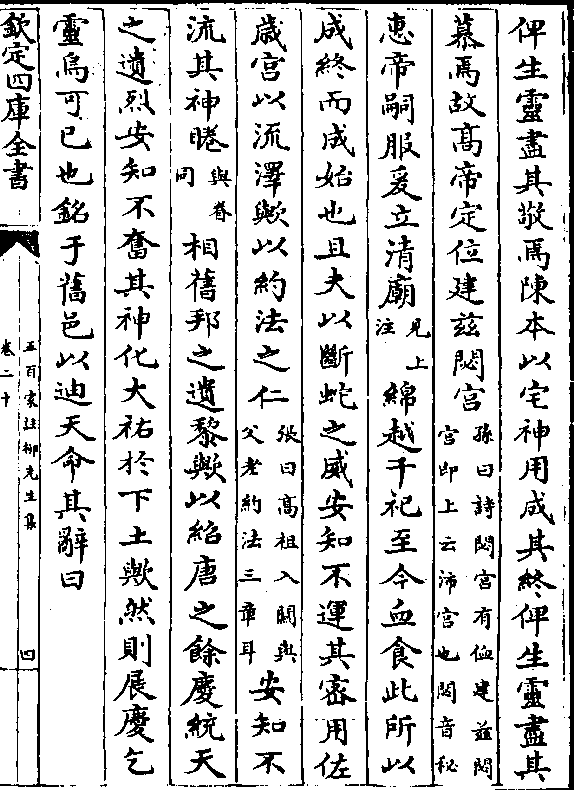 俾生靈盡其敬焉陳本以宅神用成其終俾生靈盡其
慕焉故高帝定位建兹閟宫孫曰詩閟宫有侐建兹閟宫即上云沛宫也閟音秘
惠帝嗣服爰立清廟見上注綿越千祀至今血食此所以
成終而成始也且夫以斷蛇之威安知不運其密用佐
歳宫以流澤歟以約法之仁張曰高祖入關與父老約法三章耳安知不
流其神睠與眷同相舊邦之遺黎歟以紹唐之餘慶統天
之遺烈安知不奮其神化大祐於下土歟然則展慶乞
靈烏可已也銘于舊邑以迪天命其辭曰
欽定四庫全書
五百家註柳先生集
卷二十
四